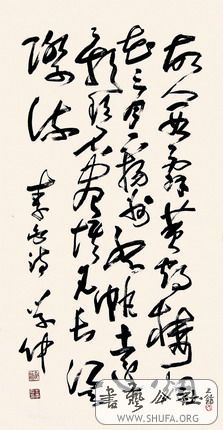 故人西辭黃鶴樓烟
花三月下揚州孤帆遠
影碧空盡惟見長江天
際流
李白詩 學仲
書藝公社
WWW.SHUFA.ORG